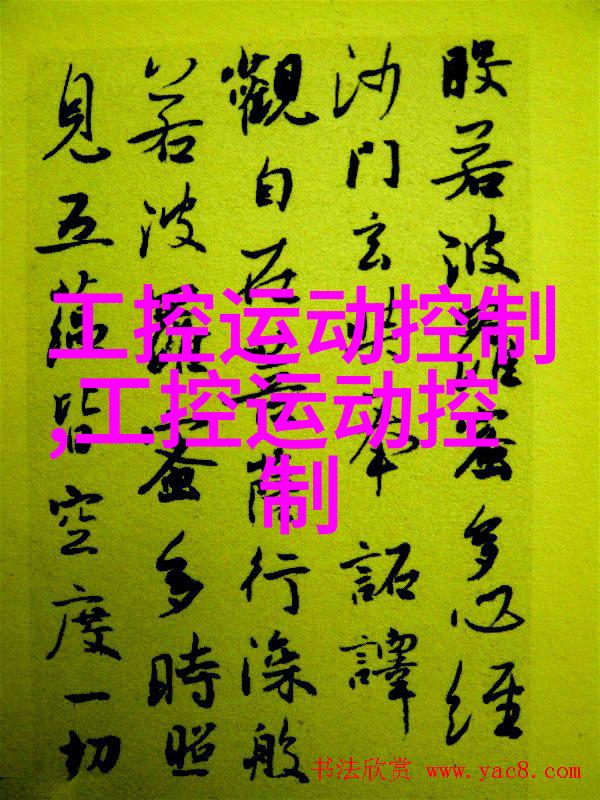 般若波羅蜜多心經
沙門玄奘奉詔譯
觀自在菩薩行深般
若波羅蜜多時照
見五蘊皆空度一切
工控运动控制
,工控运动控
制
书法欣赏 www.yac8.com